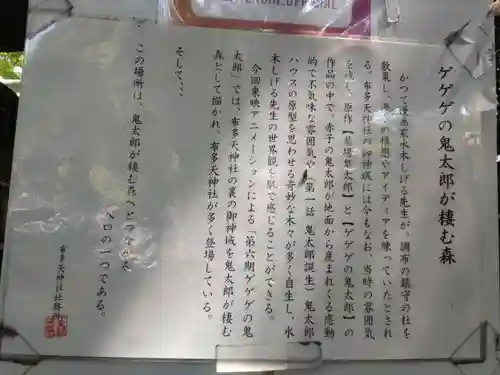 OFFICIAL
ゲゲゲの鬼太郎が棲む森
かつて漫画家水木しげる先生が、調布の鎮守の杜を
散策し、の構想やアイディアを練っていたとされ
る。布多天神社の御神域には今もなお、当時の雰囲気
を残し、原作【墓場鬼太郎】と【ゲゲゲの鬼太郎】の
作品の中で、赤子の鬼太郎が地面から産まれくる感動
的で不気味な雰囲気や「第一話 鬼太郎誕生」鬼太郎
ハウスの原型を思わせる奇妙な木々が多く自生し、水
木しげる先生の世界観を肌で感じることができる。
今回東映アニメーションによる「第六期ゲゲゲの鬼
太郎」では、布多天神社の裏の御神域を鬼太郎が棲む
森として描かれ、布多天神社が多く登場している。
そして…
この場所は、鬼太郎が棲む森へとつながる
入口の一つである。
布多天神社社務